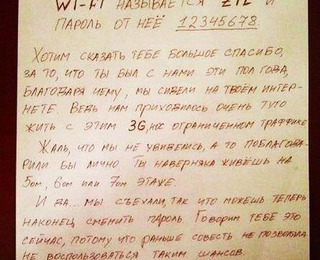 WI-FI НАЗЫВАЕТСЯ ZTE И
ПАРОЛЬ ОТ НЕЁ 12345678.
ХОТИМ СКАЗАТЬ ТЕБЕ БОЛЬШОЕ СПАСИБО,
ЗА ТО, ЧТО ТЫ БЫЛ С НАМИ ЭТИ ПОЛ ГОДА,
БЛАГОДАРЯ ЧЕМУ, МЫ СИДЕЛИ НА ТВОЕМ ИНТЕР-
НЕТЕ. ВЕДЬ НАМ ПРИХОДИЛОСЬ ОЧЕНЬ ТУГО
ЖИТЬ С ЭТИМ 3G, ОГРАНИЧЕННОМ ТРАФФИКЕ
ЖАЛЬ, ЧТО МЫ НЕ УВИДЕЛИСЬ, А ТО ПОБЛАГОДА-
РИЛИ БЫ ЛИЧНО ТЫ НАВЕРНЯКА ЖИВЁШЬ НА
5ОМ, 6ОМ ИЛИ 7ОМ ЭТАЖЕ.
И ДА... МЫ СЪЕХАЛИ, ТАК ЧТО МОЖЕШЬ ТЕПЕРЬ
НАКОНЕЦ СМЕНИТЬ ПАРОЛЬ. ГОВОРИМ ТЕБЕ ЭТО
СЕЙЧАС, ПОТОМУ ЧТО РАНЬШЕ СОВЕСТЬ НЕ ПОЗВОЛЯЛА
НЕ ВОСПОЛЬЗОВАТЬСЯ ТАКИМ ШАНСОМ.